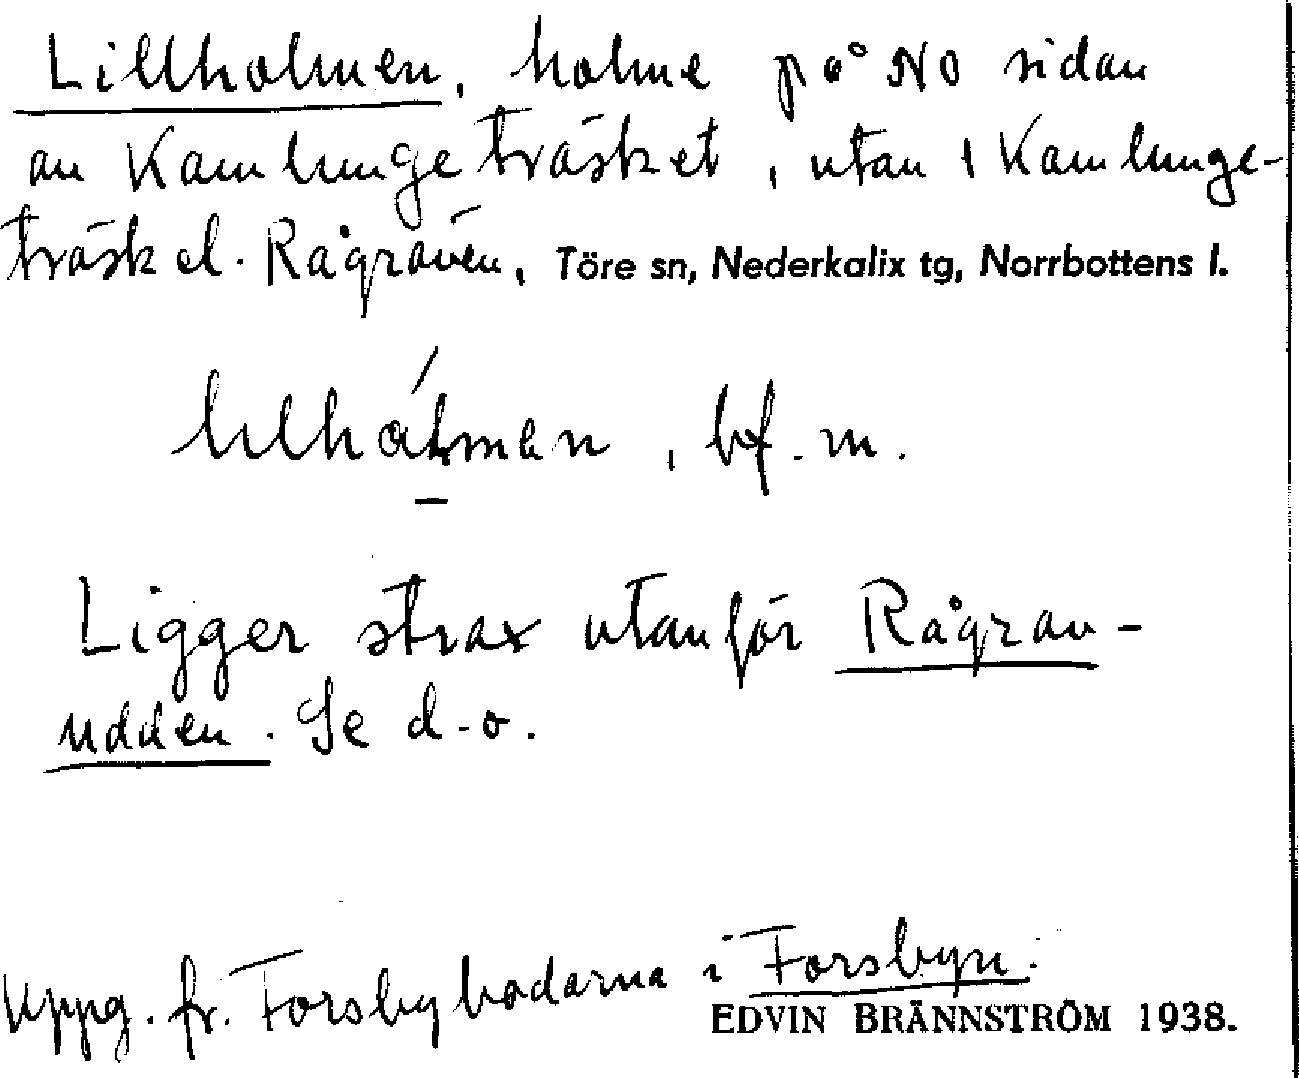 Lillholmen, holme på NO sidan
av Kamlungeträsket, utan i Kamlunge-
träsk el. Rågraven, Töre sn, Nederkalix tg, Norrbottens l.
bf. m.
Ligger strax utanför Rågrav-
udden. Se d-o.
Uppg. fr. Forsbybodarna i Forsbyn.
EDVIN BRÄNNSTRÖM 1938.